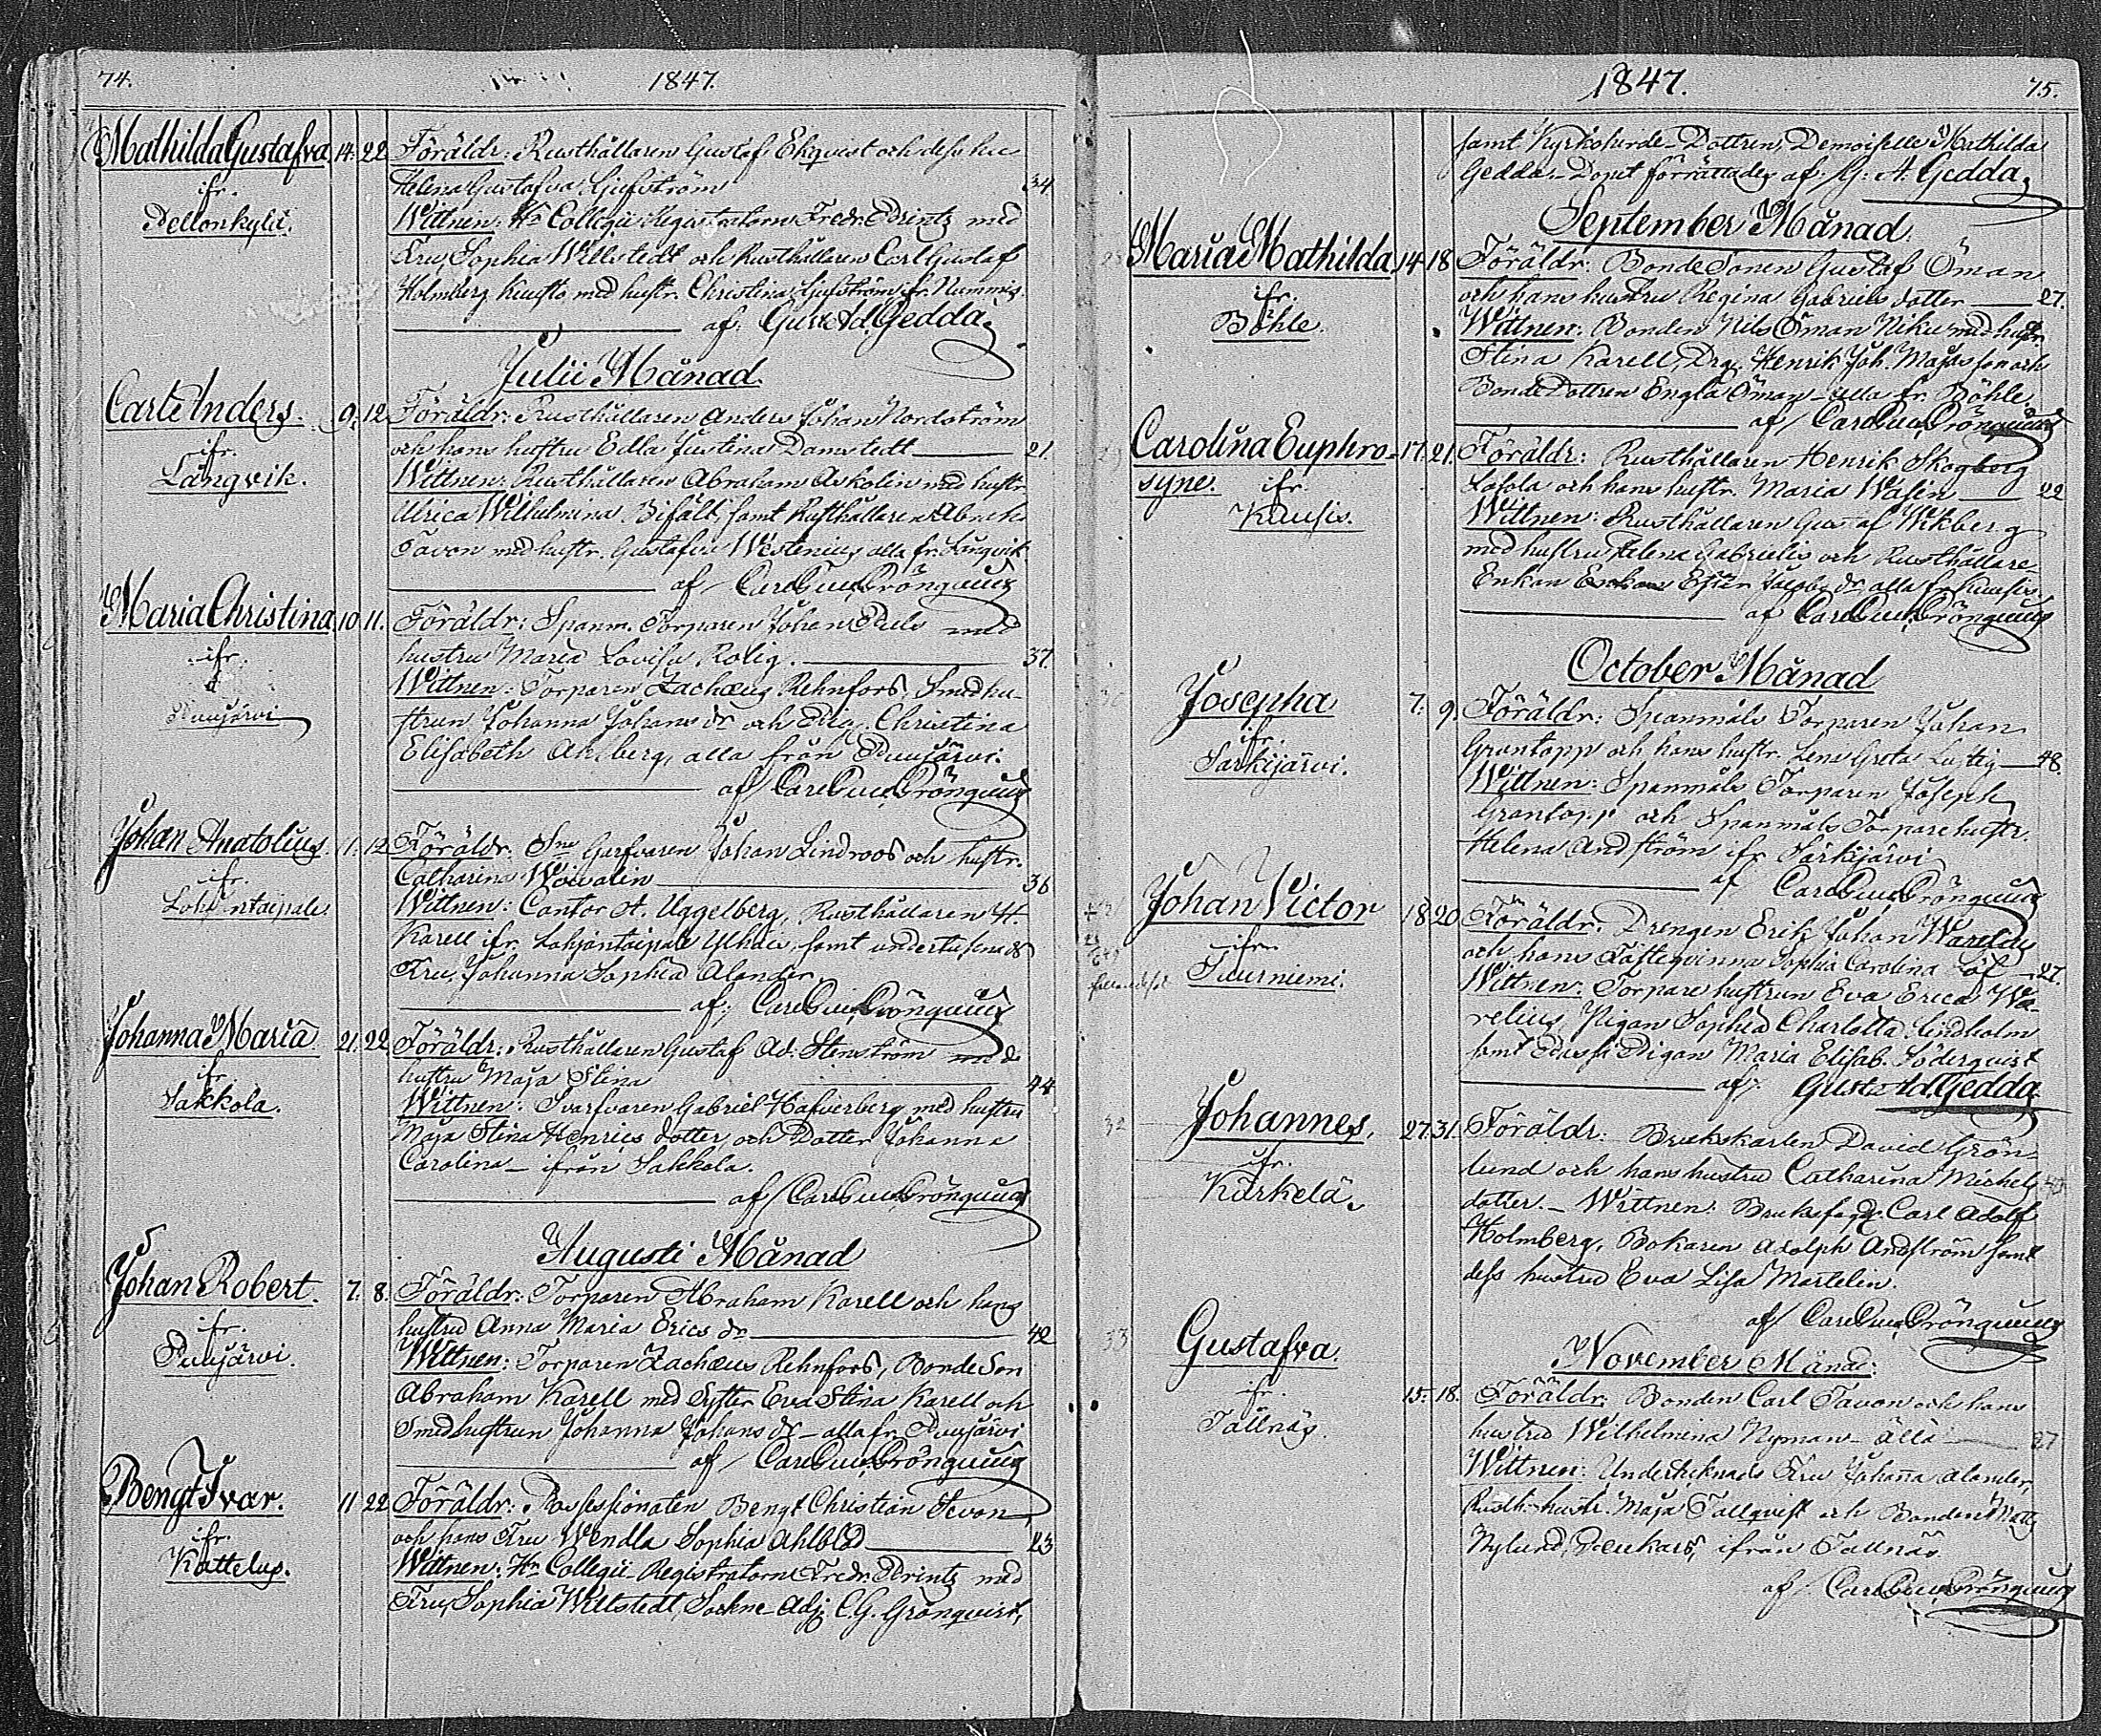 74. 1847.
Mathilda Gustafva 14. 22 Föräldr: Rusthållaren Gustaf Ekqvist och dess hu
ifr. Helena Gustafva 34
Wittnen: Hr Collegii Registratorn Fredr. Printz med
Fru, Sophia Willstedt och Rusthållaren Carl Gustaf
Holmberg med hustr. Christina fr. Nummis.
af: Gust. Ad. Gedda.
Julii Månad.
Carl Anders. 9. 12. Föräldr: Rusthållaren Anders Johan Nordström
ifr. och hans hustru Edla Justina Damstedt 21.
Långvik. Wittnen: Rusthållaren Abraham Askolin med hustr.
Ulrica Wilhelmina Bifält, samt Rusthållaren
Tavon med hustr. Gustafva Westenius alla fr. Långvik
af / Carl Gust. Grönqvist
Maria Christina 10 11. Föräldr: Spanm. Torparen Johan med
ifr. hustru Maria Lovisa Rolig. 37.
Puujärvi Wittnen: Torparen Zachæus Rehnfors, Smedhu-
strun Johanna Johans dr och Pig. Christina
Elisabeth Ahlberg, alla från Puujärvi.
af / Carl Gust. Grönqvist
Johan Anatolius. 11. 12 Föräldr: Garfvaren Johan Lindroos och hustr.
ifr. Catharina 36
Wittnen: Cantor A. Uggelberg, Rusthållaren H.
Karell ifr. Lohjantaipale samt
Fru, Johanna Sophia Alander.
af; Carl Gust. Grönqvist
Johanna Maria 21. 22 Föräldr: Rusthållaren Gustaf Ad: Stenström med
ifr hustru Maja Stina 44
Sakkola. Wittnen: Svarfvaren Gabriel Hafverberg med hustru
Maja Stina Henrics dotter, och Dotter Johanna
Carolina — ifrån Sakkola.
af / Carl Gust. Grönqvist
Augusti Månad
Johan Robert. 7. 8. Föräldr: Torparen Abraham Karell och hans
ifr. hustru Anna Maria Erics dr 42
Puujärvi. Wittnen: Torparen Zachæus Rehnfors, Bonde Son
Abraham Karell med Syster Eva Stina Karell och
Smedhustrun Johanna Johans dr — alla fr. Puujärvi
af / Carl Gust. Grönqvist
Bengt Ivar. 11 22 Föräldr: Possessionaten Bengt Christian Sevon
ifr och hans Fru Wendla Sophia Ahlblad 23
Kattelus. Wittnen: Hr Collegii Registratorn Fredr. Printz med
Fru, Sophia Willstedt, Sockne-Adj: C.G. Grönqvist,
1847. 75.
samt Kyrkoherde-Dottren, Demoiselle Mathilda
Gedda. — Dopet förrättades af: G: A. Gedda.
September Månad.
Maria Mathilda 14 18 Föräldr: Bonde Sonen Gustaf Öman
ifr. och hans hustru Regina Gabriels dotter 27.
Böhle. Wittnen: Bonden Nils Öman Niku med hustr.
Stina Karell, Drg. Henrik Joh. Matts son och
Bonde Dottren Engla Öman — alla fr. Böhle.
af / Carl Gust. Grönqvist
Carolina Euphro- 17. 21. Föräldr: Rusthållaren Henrik Skogberg
syne. ifr. Lafola och hans hustr. Maria Wasin 22
Kausis. Wittnen: Rusthållaren Gustaf Wikberg
med hustru Helena Gabrielis och Rusthållare
Enkan alla fr Kausis.
af Carl Gust. Grönqvist
October Månad
Josepha 7. 9. Föräldr: Spanmåls Torparen Johan
ifr. Grantopp och hans hustr. Lena Greta Lustig 48.
Särkijärvi. Wittnen: Spanmåls Torparen Joseph
Grantopp och Spanmåls Torparehustr.
Helena Andström ifr Särkijärvi
af Carl Gust. Grönqvist
Johan Victor 18 20 Föräldr: Drengen Erik Johan Warelius
ifr. och hans Fästeqvinna Sophia Carolina Löf 27.
Tuurniemi. Wittnen: Torpare hustrun Eva Erica Wa-
relius, Pigan Sophia Charlotta Lindholm
samt Pigan Maria Elisab. Söderqvist
af / Gust: Ad. Gedda.
32 Johannes, 27. 31. Föräldr: Brukskarlen David Grön-
ifr. lund och hans hustru Catharina Michels
Kärkelä. dotter. — Wittnen: Bruksfogd. Carl Adolf
Holmberg, Bokaren Adolph Andström samt
dess hustru Eva Lisa Martelin.
af / Carl Gust. Grönqvist
November Månad:
33 Gustafva. 15. 18. Föräldr: Bonden Carl Tavon och hans
ifr. hustru Wilhelmina Nyman 27
Tallnäs. Wittnen: Undertecknads Fru Johanna Alander,
Rusth. hustr. Maja Tallqvist och Bonden Matts
Nylund, ifrån Tallnäs.
af / Carl Gust. Grönqvist